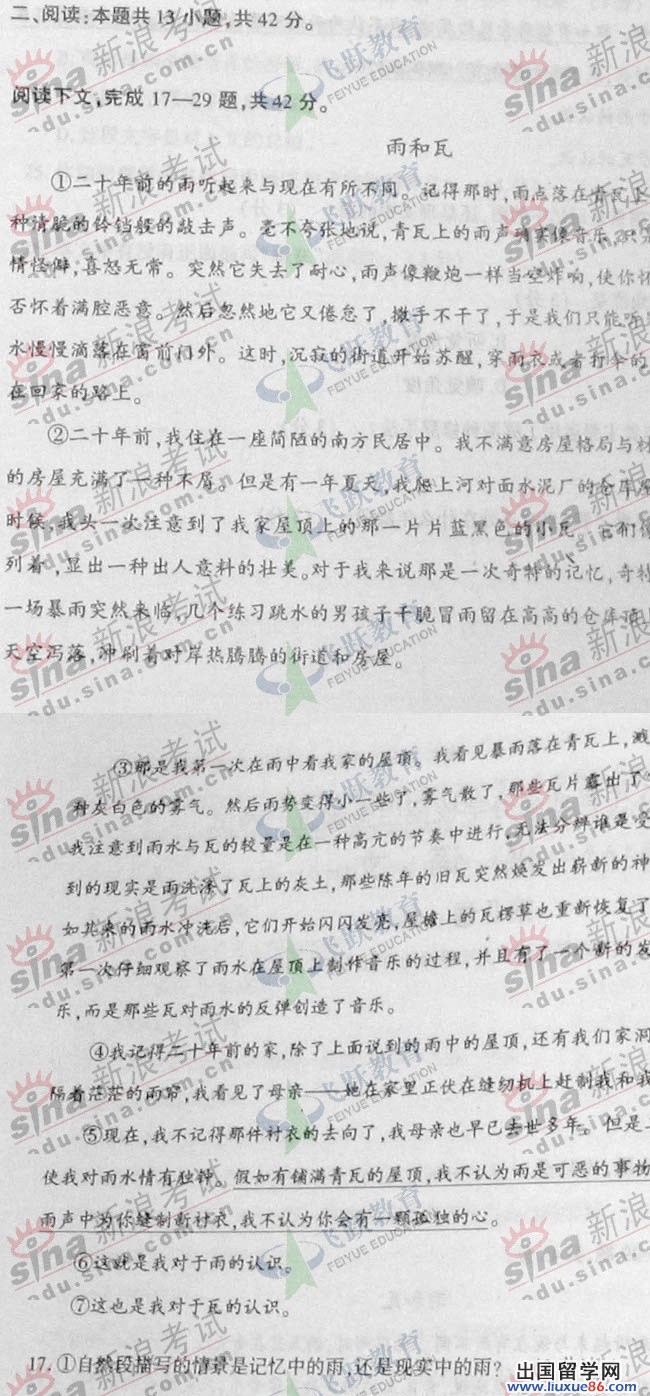 二、阅读:本题共13小题,共42分。
阅读下文,完成17—29题,共42分。
雨和瓦
①二十年前的雨听起来与现在有所不同。记得那时,雨点落在青瓦上
种清脆的铃铛般的敲击声。毫不夸张地说,青瓦上的雨声确实像音乐,只是
情怪僻,喜怒无常。突然它失去了耐心,雨声像鞭炮一样当空炸响,使你怀
否怀着满腔恶意。然后忽然地它又倦怠了,撒手不干了,于是我们只能听
水慢慢滴落在窗前门外。这时,沉寂的街道开始苏醒,穿雨衣或者打伞的
在回家的路上。
②二十年前,我住在一座简陋的南方民居中。我不满意房屋格局与材
的房屋充满了一种不屑。但是有一年夏天,我爬上河对面水泥厂的仓库屋
时候,我头一次注意到了我家屋顶上的那一片片蓝黑色的小瓦。它们像
列着,显出一种出人意料的壮美。对于我来说那是一次奇特的记忆,奇特
一场暴雨突然来临,几个练习跳水的男孩子干脆冒雨留在高高的仓库顶上
天空泻落,冲刷着对岸热腾腾的街道和房屋。
③那是我第一次在雨中看我家的屋顶。我看见暴雨落在青瓦上,溅
种灰白色的雾气。然后雨势变得小一些了,雾气散了,那些瓦片露出了
我注意到雨水与瓦的较量是在一种高亢的节奏中进行,无法分辨谁是受
到的现实是雨洗涤了瓦上的灰土,那些陈年的旧瓦突然焕发出崭新的神
如其来的雨水冲洗后,它们开始闪闪发亮,屋檐上的瓦楞草也重新恢复了
第一次仔细观察了雨水在屋顶上制作音乐的过程,并且有了一个新的发
乐,而是那些瓦对雨水的反弹创造了音乐。
④我记得二十年前的家,除了上面说到的雨中的屋顶,还有我们家洞
隔着茫茫的雨帘,我看见了母亲——她在家里正伏在缝纫机上赶制我和我
⑤现在,我不记得那件衬衣的去向了,我母亲也早已去世多年。但是二
使我对雨水情有独钟。假如有铺满青瓦的屋顶,我不认为雨是可恶的事物
雨声中为你缝制新衬衣,我不认为你会有一颗孤独的心。
⑥这就是我对于雨的认识。
⑦这也是我对于瓦的认识。
17.①自然段描写的情景是记忆中的雨,还是现实中的雨?
新浪考试
sina
edu.sina.com.cn
飞跃教育
FEIYUE EDUCATION
出国留学网
www.liuxue86.com